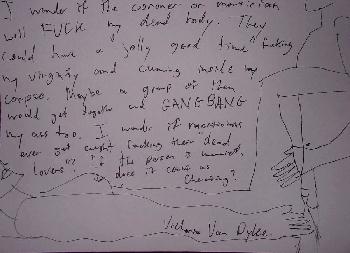 I wonder if the coroner or mortician
will FUCK my dead body. They
could have a jolly good time fucking
my virginity and cumming inside my
corpse. Maybe a group of them
would get together and GANGBANG
my ass too. I wonder if
ever get caught fucking their dead
lovers? If the person is
does it count as
cheating?
Victoria Van Dyke